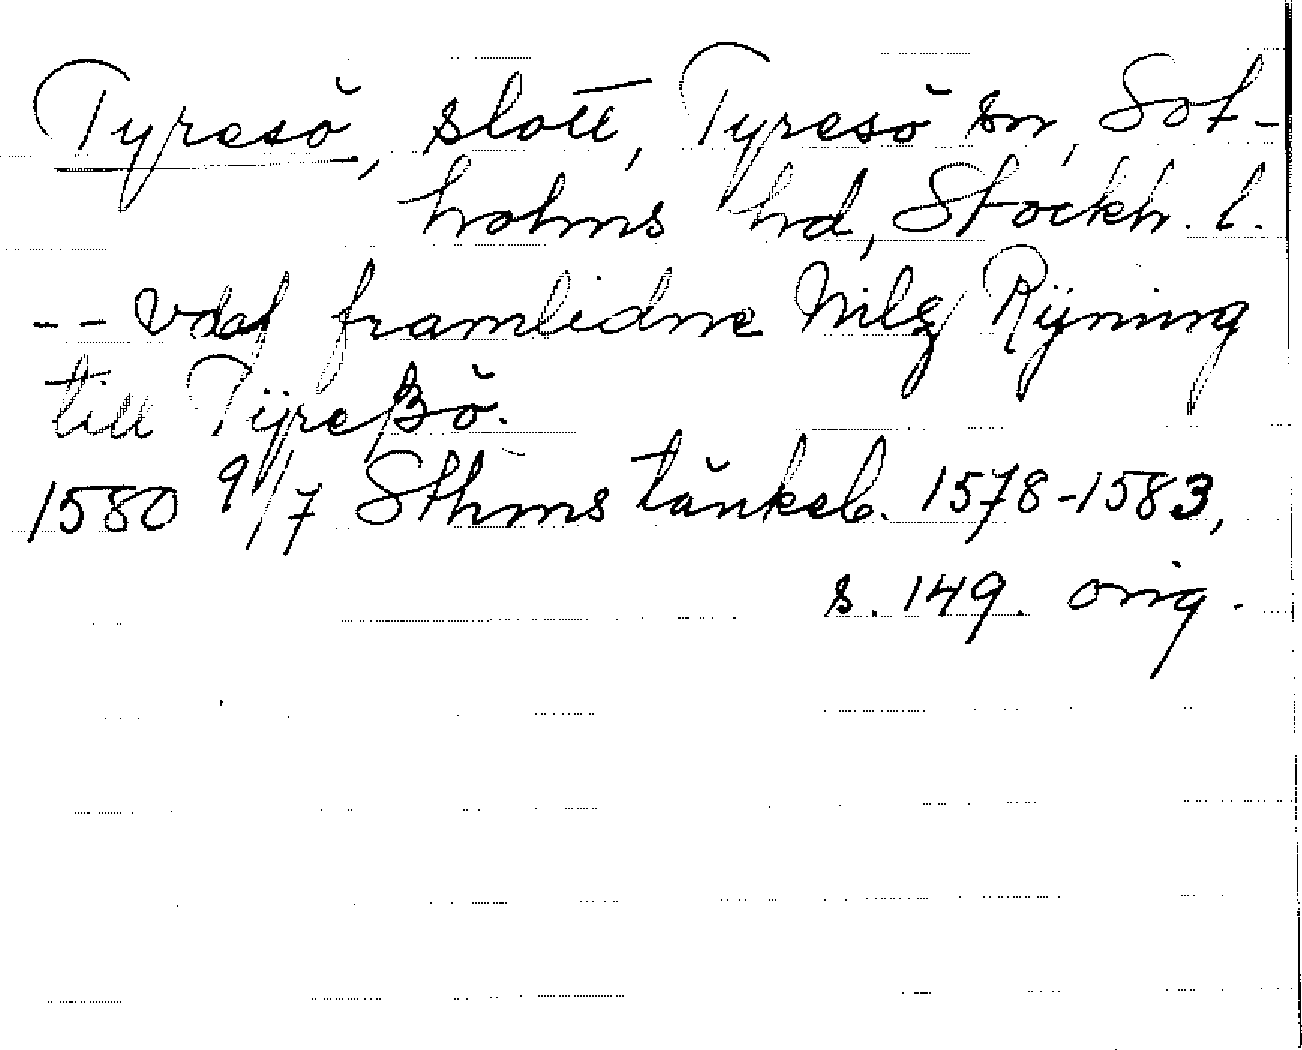 Tyresö, slott, Tyresö sn, Sot-
holms hd, Stockh. l.
-- vdaf framlidne Nilz Rÿning
till Tÿreßö.
1580 9/7 Sthms tänkeb. 1578-1583,
s. 149. orig.